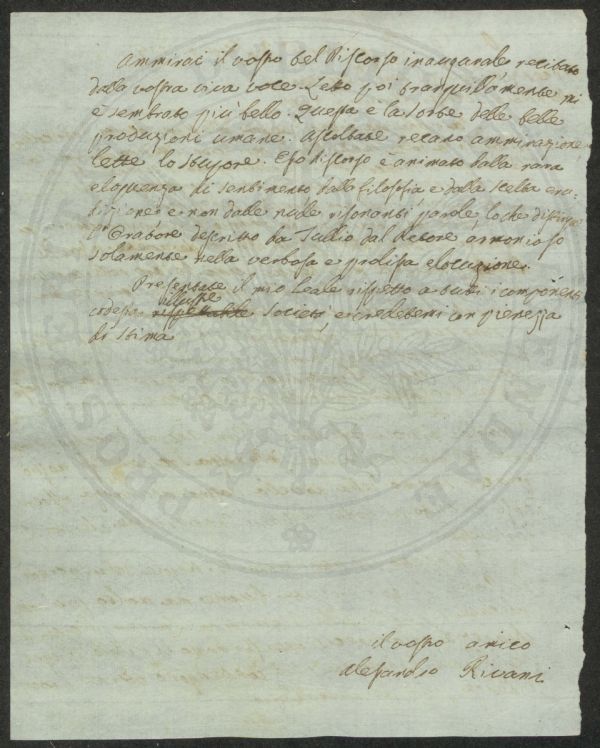 Ammirai il vostro bel Discorso inaugurale recitato
dalla vostra viva voce. Letto poi tranquillamente mi
è sembrato più bello. Questa è la sorte delle belle
produzioni umane. Ascoltate recano ammirazione,
lette lo stupore. Esso Discorso è animato dalla rara
eloquenza di sentimento dalla filosofia, e dalla scelta eru-
dizione, e non dalle nude risonanti parole, loché distingue
l'Oratore descritto da Tullio dal Retore armonioso
solamente nella verbosa e prolissa elocuzione.
Presentate il mio leale rispetto a tutti i componenti
codesta illustre rispettabile Società, e credetemi con pienezza
di stima
il vostro amico
Alessandro Rivani
PROSPERITATI
ENDAE